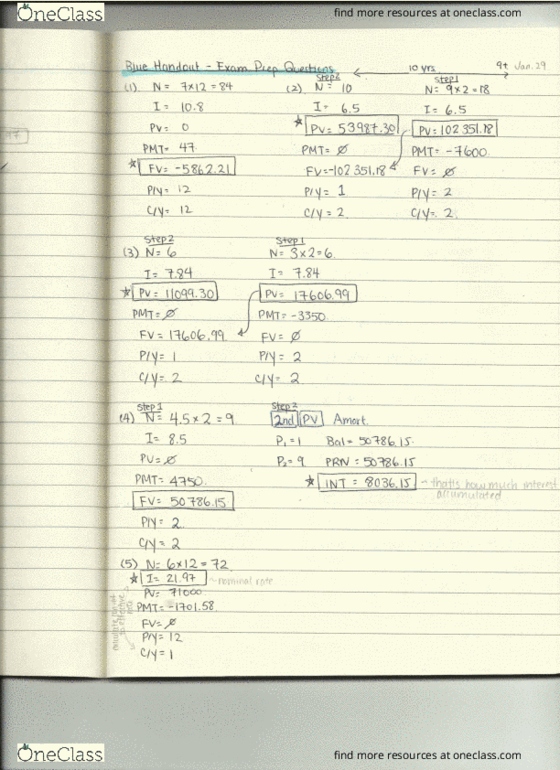 OneClass
find more resources at oneclass.com
Blue Handout - Exam Prep Questions
10 yrs
9+ Jan. 29
(1) N = 7x12 = 84
I = 10.8
PV = 0
PMT = 47
* FV = -5862.21
P/Y = 12
C/Y = 12
(2) Step 2
N = 10
I = 6.5
* PV = 53987.30
PMT = Ø
FV = -102 351.18
P/Y = 1
C/Y = 2
Step 1
N = 9x2 = 18
I = 6.5
PV = 102 351.18
PMT = -7600
FV = Ø
P/Y = 2
C/Y = 2
Step 2
(3) N = 6
I = 7.84
* PV = 11099.30
PMT = Ø
FV = 17606.99
P/Y = 1
C/Y = 2
Step 1
N = 3x2 = 6
I = 7.84
PV = 17606.99
PMT = -3350
FV = Ø
P/Y = 2
C/Y = 2
Step 1
(4) N = 4.5 x 2 = 9
I = 8.5
PV = Ø
PMT = 4750
FV = 50786.15
P/Y = 2
C/Y = 2
Step 2
2nd PV Amort.
P₁ = 1 Bal = 50786.15
P₂ = 9 PRN = 50786.15
* INT = 8036.15 - that's how much interest
accumulated
(5) N = 6x12 = 72
* I = 21.97 - nominal rate
PV = 71000
PMT = -1701.58
FV = Ø
P/Y = 12
C/Y = 1
OneClass
find more resources at oneclass.com